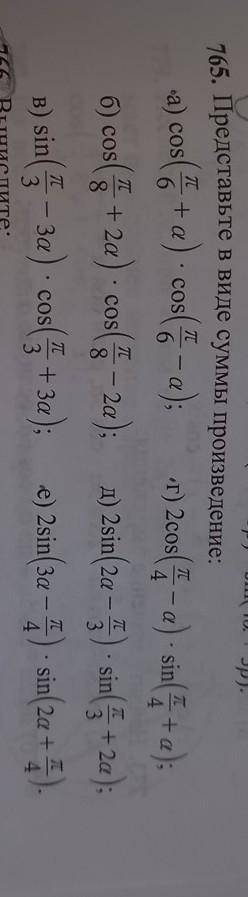 765. Представьте в виде суммы произведение:
а) cos(π/6 + α) · cos(π/6 − α); г) 2cos(π/4 − α) · sin(π/4 + α);
б) cos(π/8 + 2α) · cos(π/8 − 2α); д) 2sin(2α − π/3) · sin(π/3 + 2α);
в) sin(π/3 − 3α) · cos(π/3 + 3α); е) 2sin(3α − π/4) · sin(2α + π/4).
766. Вычислите: